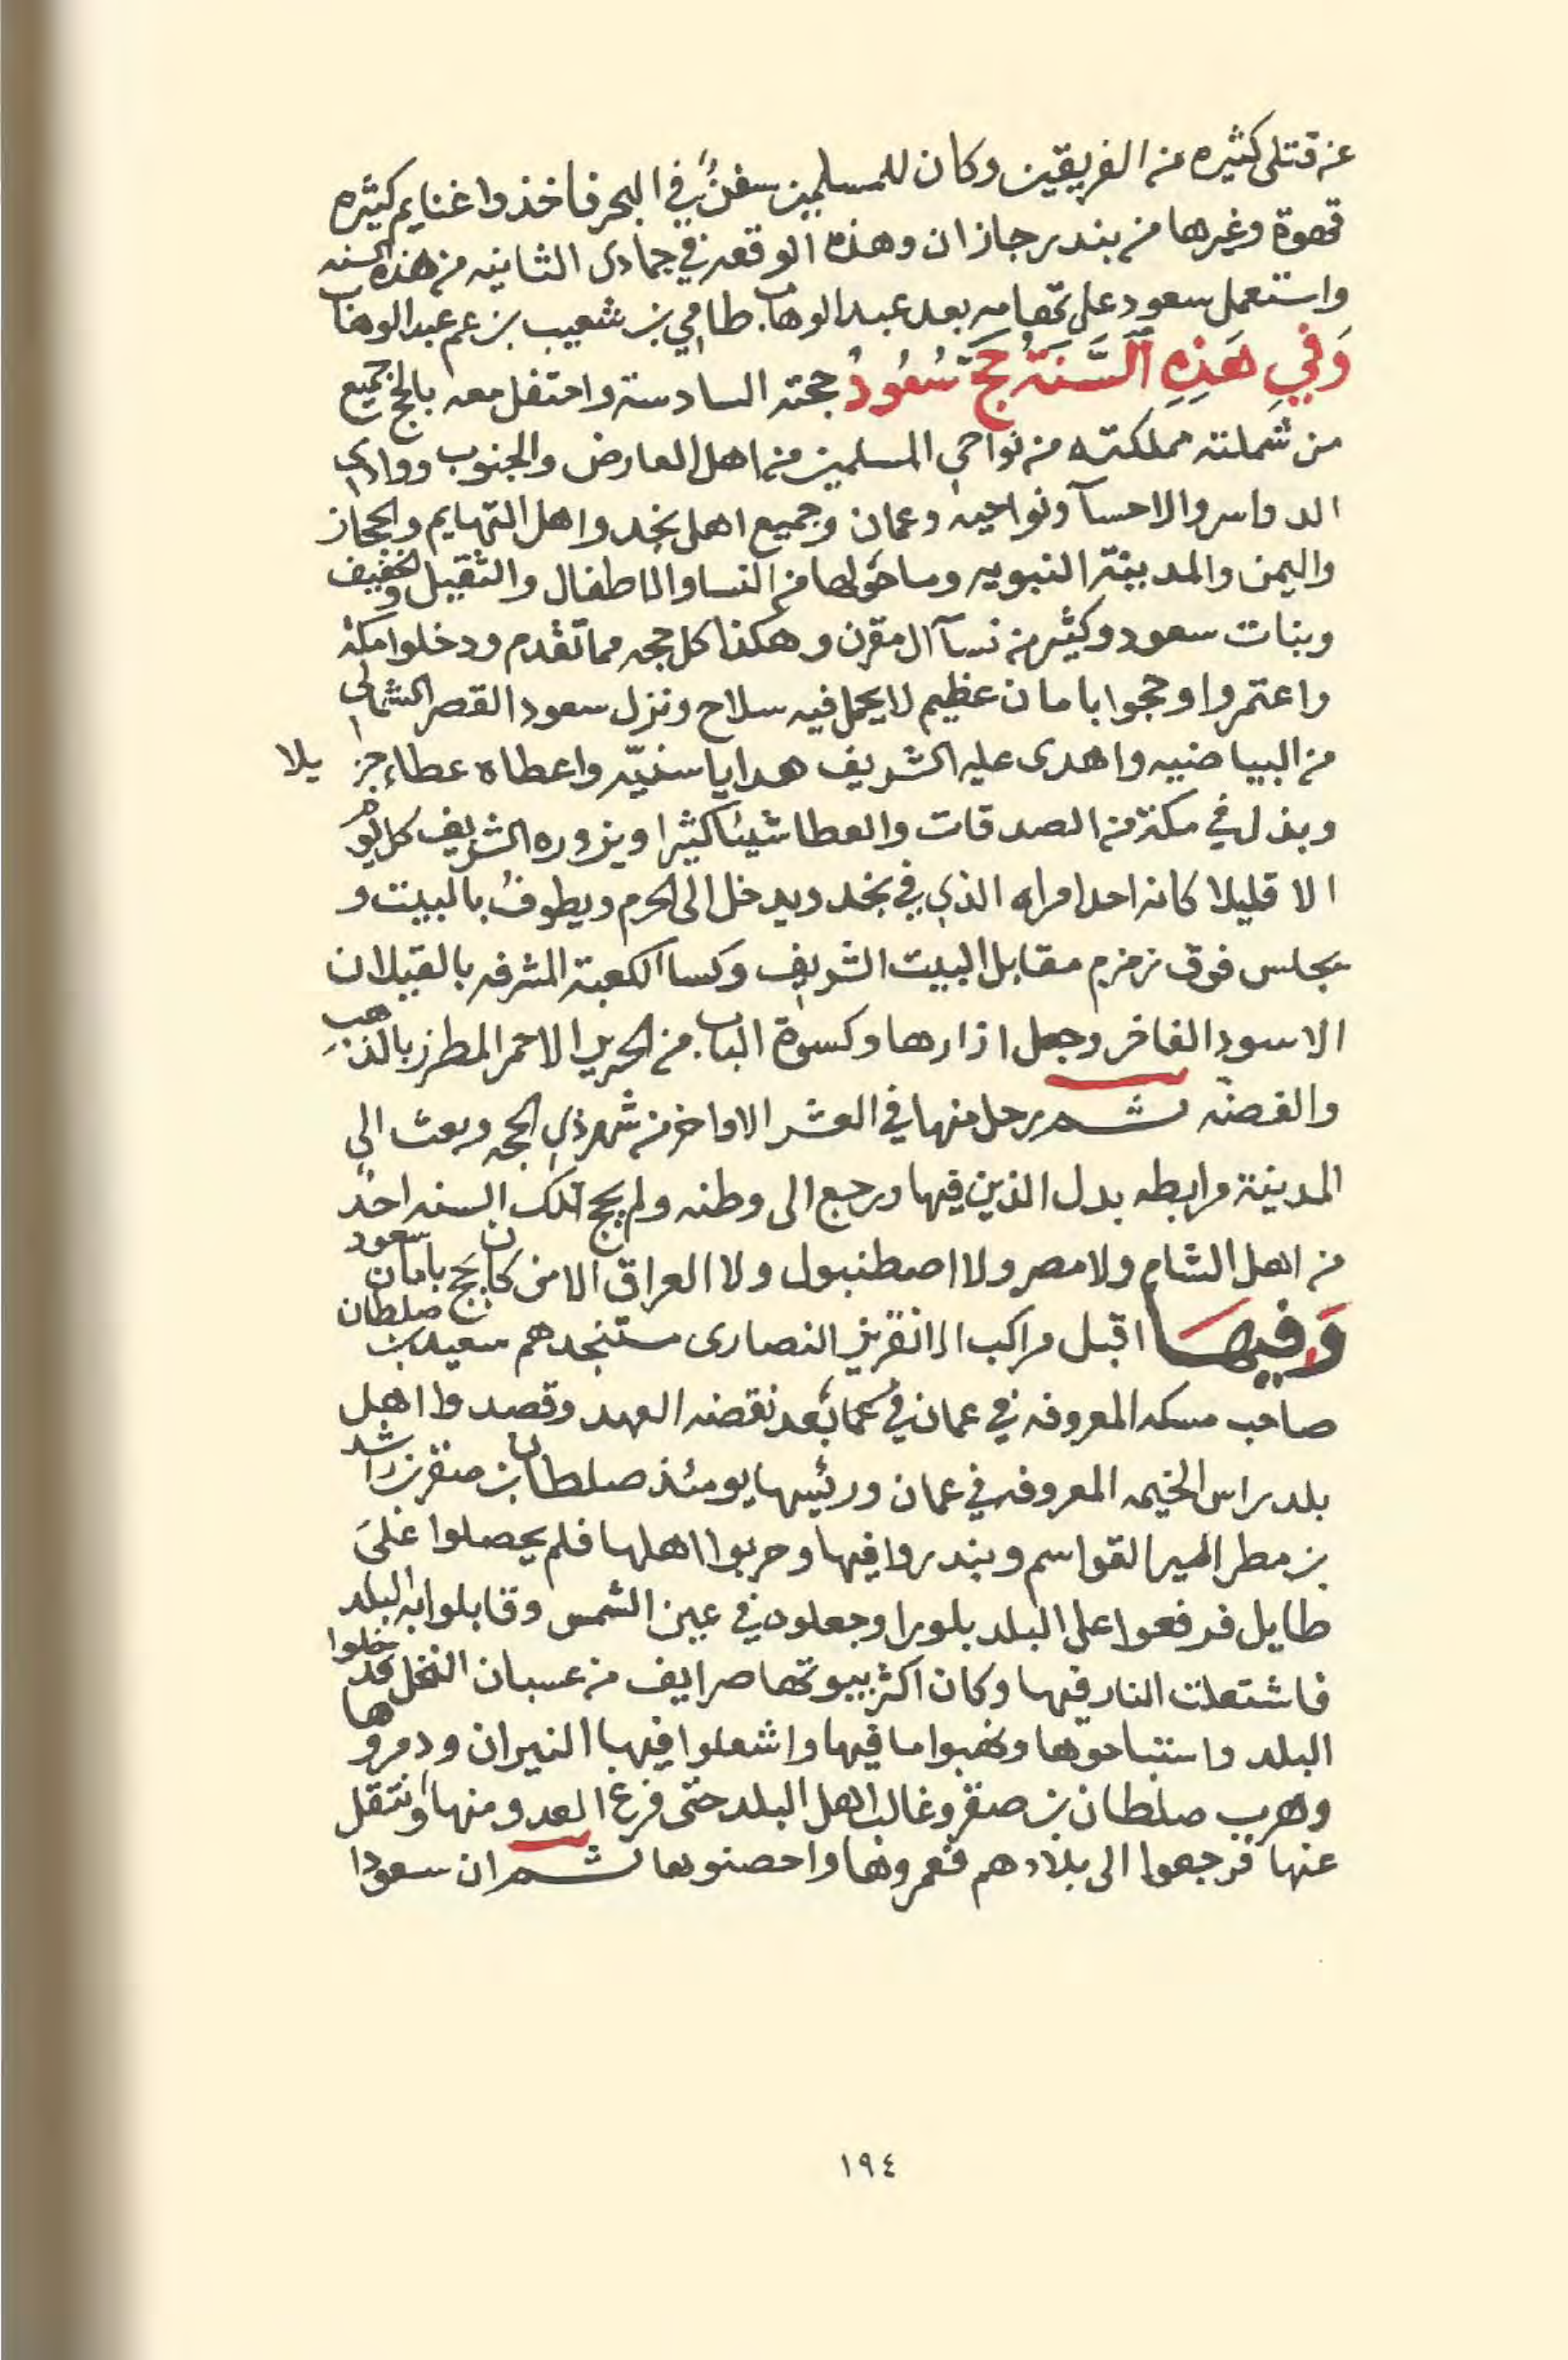 عن قتلى كثيره من الفريقين وكان للمسلمين سفنٌ في البحر فاخذوا غنايم كثيره
قهوة وغيرها من بندر جازان وهذه الوقعه في جمادى الثانيه من هذه السنه
واستعمل سعود على تهامه بعد عبد الوهاب طامي بن شعيب بن عم عبد الوهاب
وَفِي هَذِهِ السَّنَة حَجَّ سُعُودُ حجته السادسة واحتفل معه بالحج جميع
من شملته مملكته من نواحي المسلمين من اهل العارض والجنوب ووادي
الدواسر والاحسآ ونواحيه وعمان وجميع اهل نجد واهل التهايم والحجاز
واليمن والمدينة النبويه وما حولها من النسا والاطفال والثقيل والخفيف
وبنات سعود وكثير من نسآ ال مقرن وهكذا كل حجه مما تقدم ودخلوا مكة
واعتمروا وحجوا بامان عظيم لا يحمل فيه سلاح ونزل سعود القصر الشمالي
من البياضيه واهدى عليه الشريف هدايا سنيّه واعطاه عطاء جز يلا
وبذل في مكة من الصدقات والعطا شيئا كثيرا ويزوره الشريف كل يوم
الا قليلا كانه احد امراه الذي في نجد ويدخل الى الحرم ويطوف بالبيت و
يجلس فوق زمزم مقابل البيت الشريف وكسا الكعبة المشرفه بالقيلان
الاسود الفاخر وجعل ازارها وكسوة الباب من الحرير الاحمر المطرز بالذهب
والفضه ثم رحل منها في العشر الاواخر من شهر ذي الحجه وبعث الى
المدينة مرابطه بدل الذين فيها ورجع الى وطنه ولم يحج تلك السنه احد
من اهل الشام ولا مصر ولا اصطنبول ولا العراق الا من كان يحج بامان سعود
وَفيهَا اقبل مراكب الانقريز النصارى مستنجدهم سعيد بن صلطان
صاحب مسكه المعروفه في عمان في بعد نقضه العهد وقصدوا اهل
بلد راس الخيمه المعروفه في عمان ورئيسها يومئذ صلطان بن صقر بن راشد
بن مطر امير القواسم وبندروا فيها وحربوا اهلها فلم يحصلوا على
طايل فدفعوا على البلد بلورا وجعلوه في عين الشمس وقابلوا به البلد
فاشتعلت النار فيها وكان اكثر بيوتها صرايف من عسبان النخل فدخلوا
البلد واستباحوها ونهبوا ما فيها واشعلوا فيها النيران ودمروها
وهرب صلطان بن صقر وغالب اهل البلد حتى فرغ العدو منها وانتقل
عنها فرجعوا الى بلادهم فعمروها واحصنوها ثم ان سعودا
١٩٤